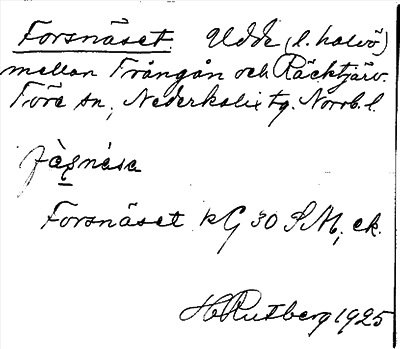 Forsnäset. Udde (l. halvö)
mellan Frångån och Räcktjärv.
Töre sn, Nederkalix tg. Norrb. l.
Forsnäset KG 30 SM; ek.
H Rutberg 1925